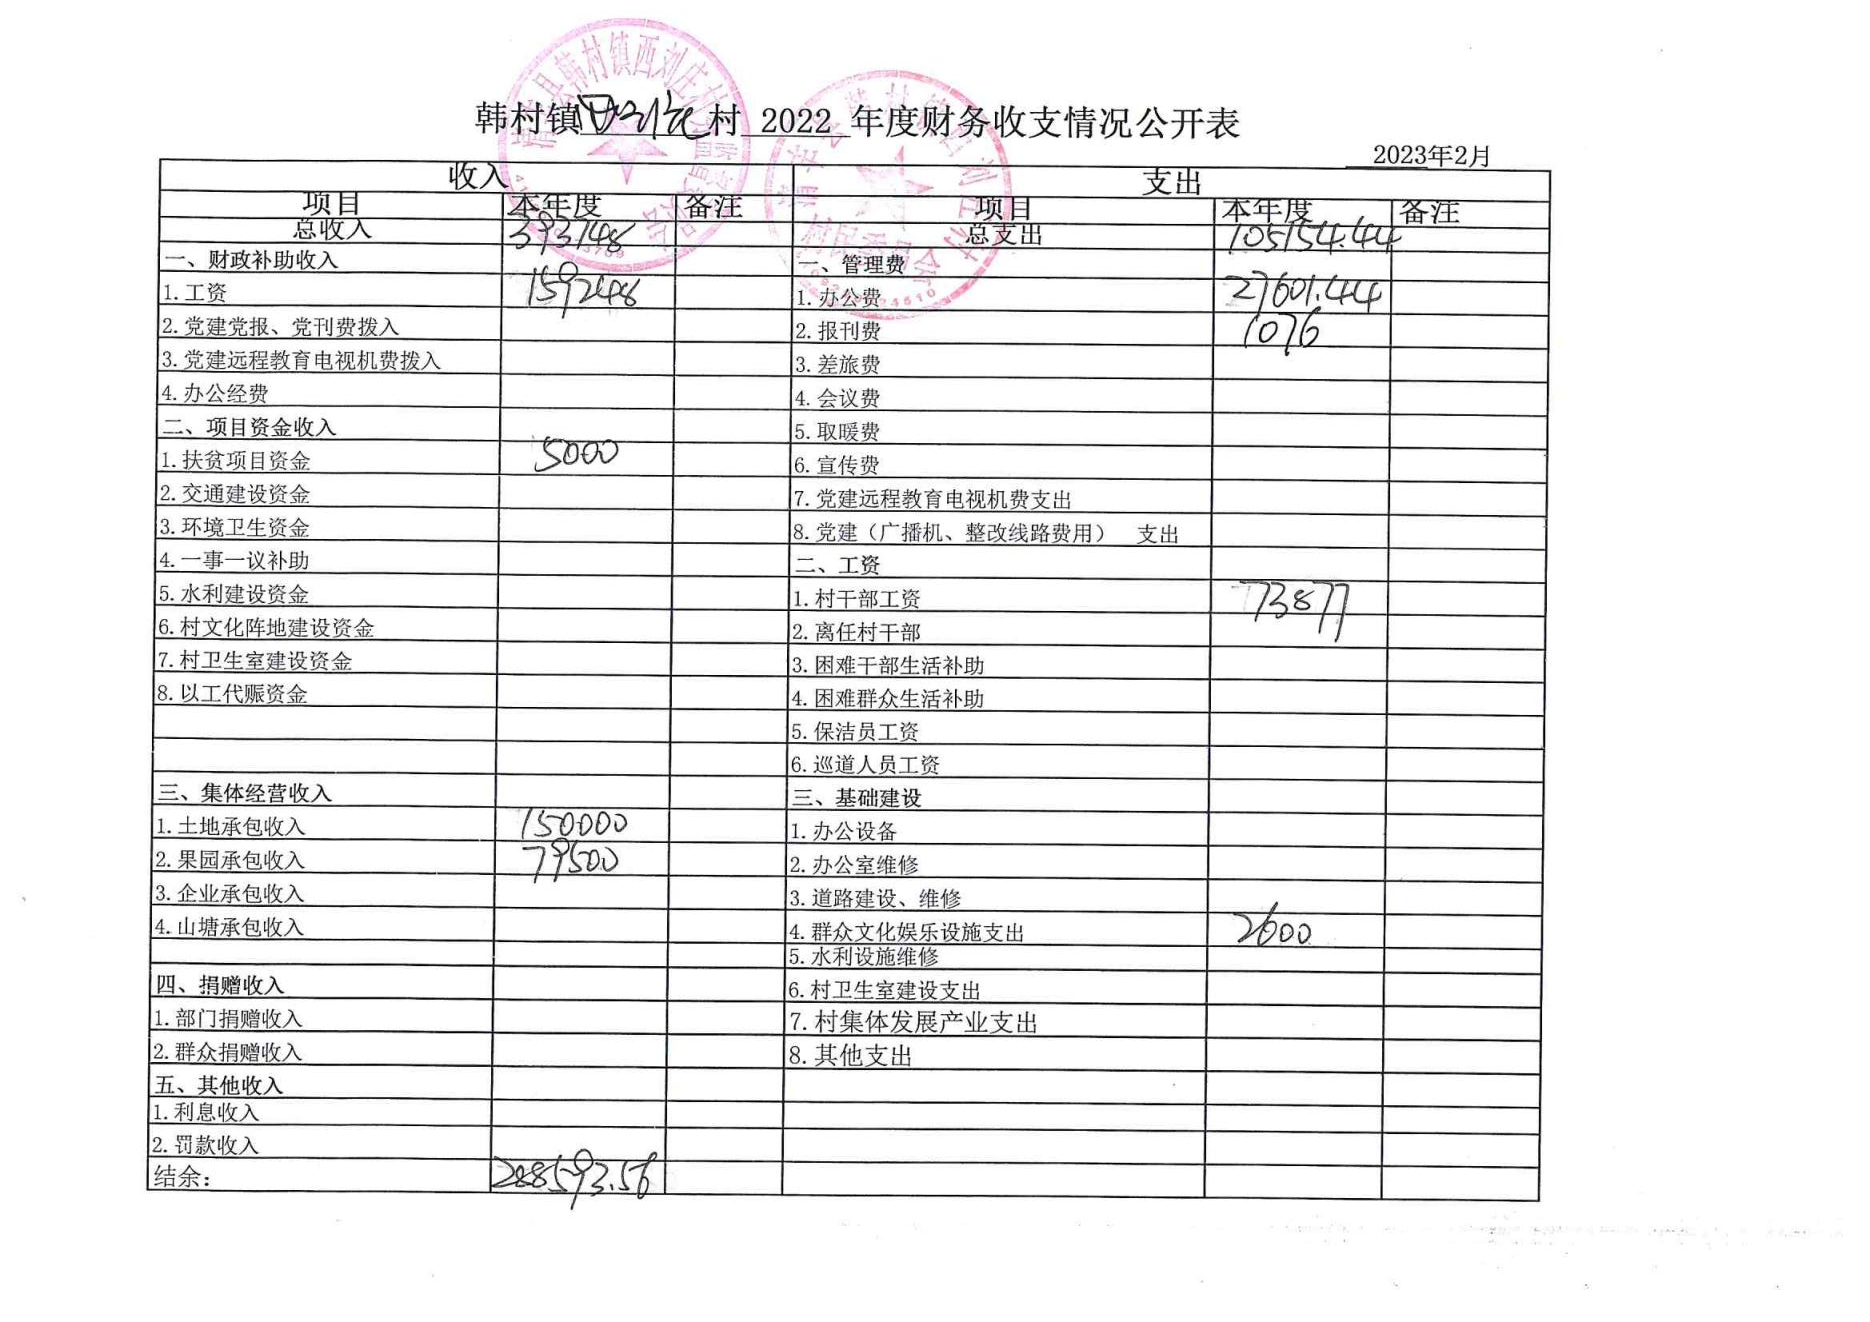 韩村镇西刘庄村 2022 年度财务收支情况公开表
2023年2月
收入 支出
项目 本年度 备注 项目 本年度 备注
总收入 393748 总支出 105154.44
一、财政补助收入 一、管理费
1.工资 159248 1.办公费 27601.44
2.党建党报、党刊费拨入 2.报刊费 1076
3.党建远程教育电视机费拨入 3.差旅费
4.办公经费 4.会议费
二、项目资金收入 5.取暖费
1.扶贫项目资金 5000 6.宣传费
2.交通建设资金 7.党建远程教育电视机费支出
3.环境卫生资金 8.党建（广播机、整改线路费用） 支出
4.一事一议补助 二、工资
5.水利建设资金 1.村干部工资 73877
6.村文化阵地建设资金 2.离任村干部
7.村卫生室建设资金 3.困难干部生活补助
8.以工代赈资金 4.困难群众生活补助
5.保洁员工资
6.巡道人员工资
三、集体经营收入 三、基础建设
1.土地承包收入 150000 1.办公设备
2.果园承包收入 79500 2.办公室维修
3.企业承包收入 3.道路建设、维修
4.山塘承包收入 4.群众文化娱乐设施支出 2600
5.水利设施维修
四、捐赠收入 6.村卫生室建设支出
1.部门捐赠收入 7.村集体发展产业支出
2.群众捐赠收入 8.其他支出
五、其他收入
1.利息收入
2.罚款收入
结余： 288593.56